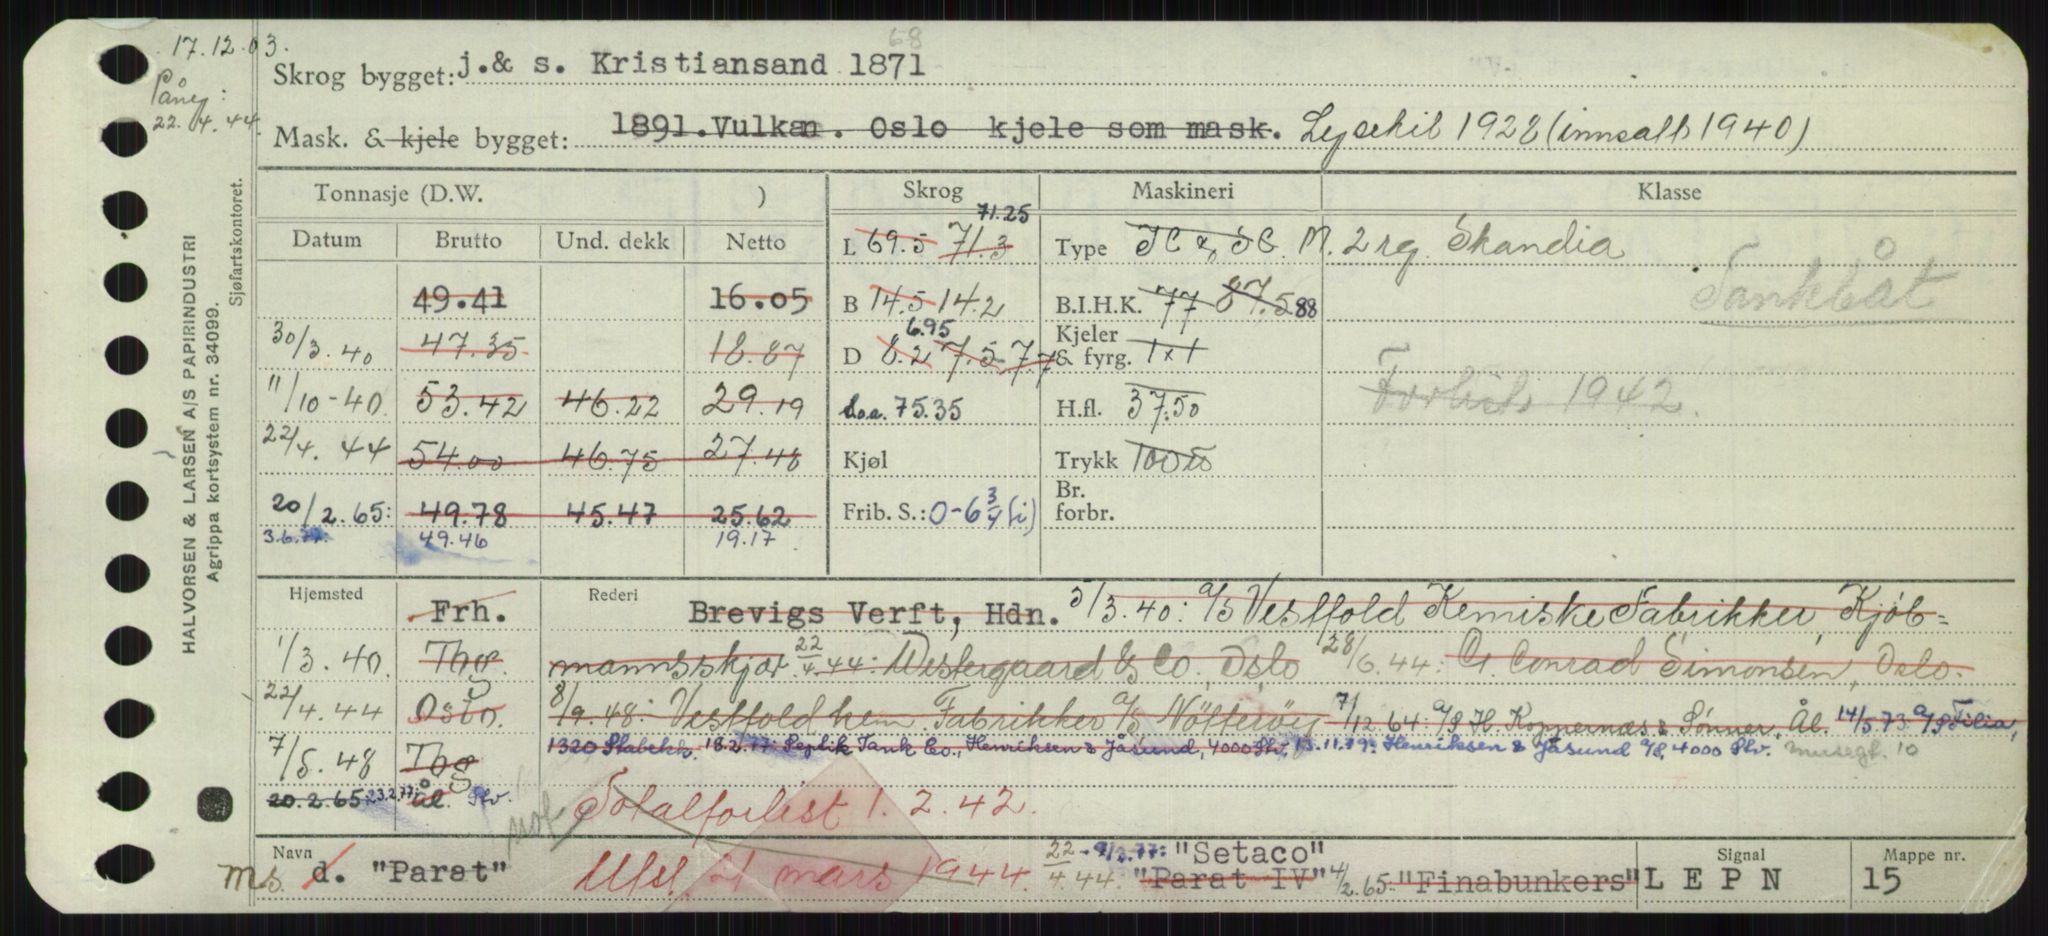 17.12.03.
Påny:
22.4.44.
68
Skrog bygget: j.& s. Kristiansand 1871
Mask. & kjele bygget: 1891.Vulkan. Oslo kjele som mask. Lysekil 1928 (innsatt 1940)
Tonnasje (D.W. ) Skrog Maskineri Klasse
Datum Brutto Und. dekk Netto L 69.5 71.3 71.25 Type M. 2 rg. Skandia
Tankbåt
49.41 16.05 B 14.5 14.2 B.I.H.K. 77 87.5 88
30/3.40 47.35 18.87 D 8.2 7.5 7.7 6.95 Kjeler & fyrg. 1x1
Forlist 1942.
11/10-40 53.42 46.22 29.19 L.o.a. 75.35 H.fl. 37.50
22/4.44 54.00 46.75 27.48 Kjøl Trykk 100
20/2.65: 49.78 45.47 25.62 Frib. S.: 0-6 3/4 (i) Br. forbr.
3.6.77: 49.46 19.17
Hjemsted Frh. Rederi Brevigs Verft, Hdn. 5/3.40: A/S Vestfold Kemiske Fabrikker, Kjöb=
1/3.40. Tbg. mannsskjær 22/4.44: Westergaard & Co, Oslo 28/6.44: C. Conrad Simonsen, Oslo.
22/4.44 Oslo. 8/9.48: Vestfold kem. Fabrikker A/S Nötteröy 7/12 64: A/S H. Koppernæs & Sønner, Ål. 14/5.73: A/S Filia,
7/5.48 Tbg 1320 Stabekk. 18.2.77: Replik Tank Co., Henriksen & Jåsund, 4000 Stv. 13.11.79: Henriksen & Jåsund A/S, 4000 Stv. musegt. 10
20.2.65: Ål 23.2.77: Stv.
Totalforlist 1.2.42.
Navn ms. d. "Parat" Utsl. 21 mars 1944. 22/4.44. "Parat IV" "Setaco" 4/2.65: "Finabunkers" Signal L E P N Mappe nr. 15
HALVORSEN & LARSEN A/S PAPIRINDUSTRI
Agrippa kortsystem nr. 34099.
Sjøfartskontoret.